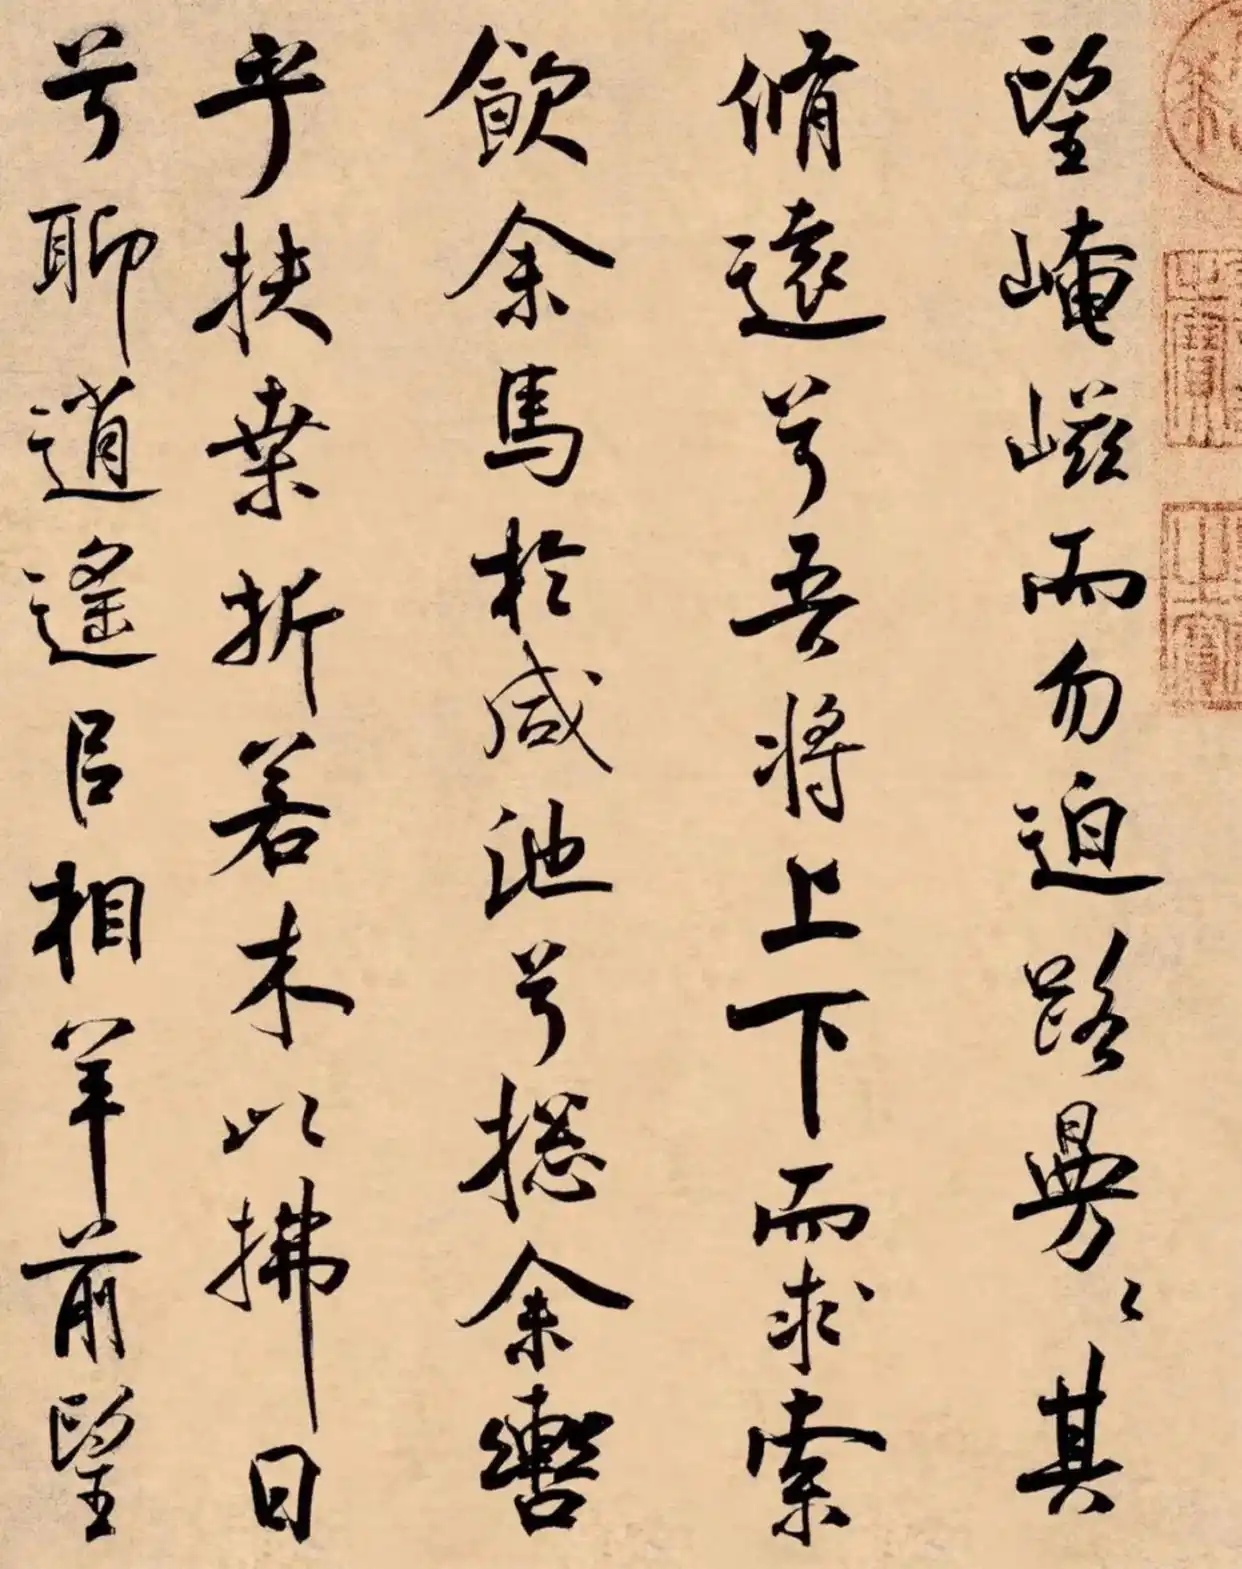 望崦嵫而勿迫路曼〻其
脩遠兮吾將上下而求索
飲余馬於咸池兮揔余轡
乎扶桒折若木以拂日
兮聊逍遥㠯相羊前望